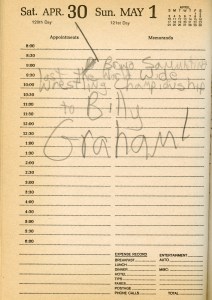 Sat. APR. 30 Sun. MAY 1
120th Day 121st Day
Appointments Memoranda
8:00
8:30
9:00
9:30
10:00
10:30
11:00
11:30
12:00
12:30
1:00
1:30
2:00
2:30
3:00
3:30
4:00
4:30
5:00
5:30
6:00
Bruno Sammartino
lost the World Wide
Wrestling Championship
to Billy
Graham!
EXPENSE RECORD
BREAKFAST
LUNCH
DINNER
HOTEL
TIPS
FARES
POSTAGE
PHONE CALLS
ENTERTAINMENT
AUTO
MISC.
TOTAL